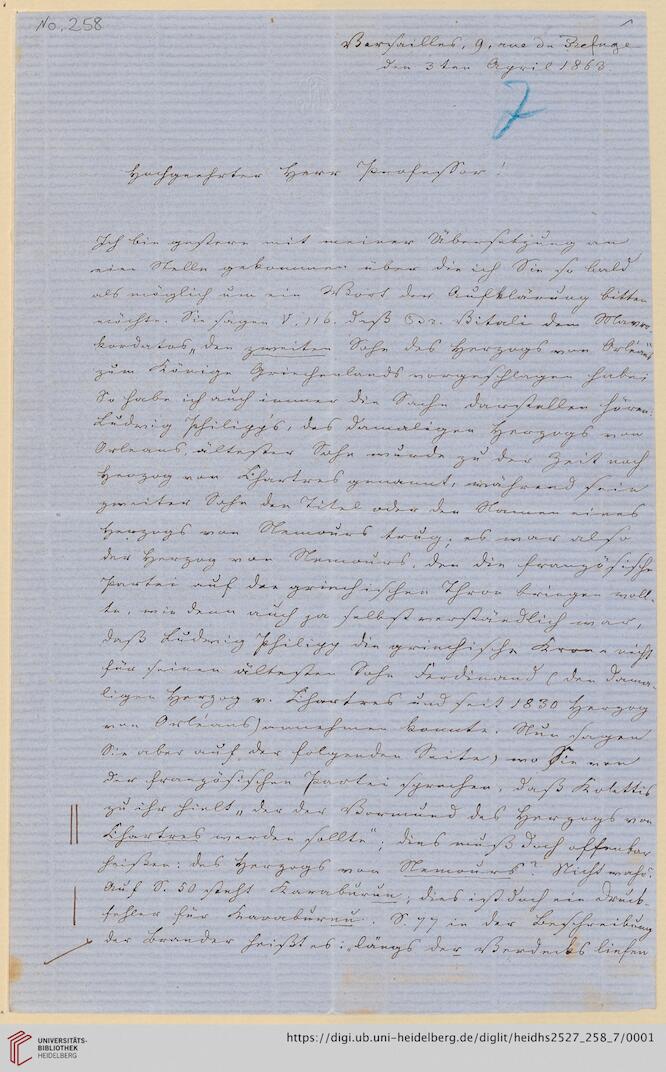 No. 258
1
Versailles, 9, rue du Refuge
den 3ten April 1863.
7
Hochgeehrter Herr Professor!
Ich bin gestern mit meiner Übersetzung an
eine Stelle gekommen über die ich Sie so bald
als möglich um ein Wort der Aufklärung bitten
möchte. Sie sagen V. 116. daß Vitali dem Mavro-
kordatos „den zweiten Sohn des Herzogs von Orléans
zum Könige Griechenlands vorgeschlagen habe;
So habe ich auch immer die Sache darstellen hören:
Ludwig Philipp's, des damaligen Herzogs von
Orleans, ältester Sohn wurde zu der Zeit noch
Herzog von Chartres genannt, während sein
zweiter Sohn den Titel oder den Namen eines
Herzogs von Nemours trug; es war also
der Herzog von Nemours, den die französische
Partei auf den griechischen Thron bringen woll-
te, wie denn auch ja selbstverständlich war,
daß Ludwig Philipp die griechische Krone nicht
für seinen ältesten Sohn Ferdinand (den dama-
ligen Herzog v. Chartres und seit 1830 Herzog
von Orléans) annehmen konnte. Nun sagen
Sie aber auf der folgenden Seite, wo Sie von
der französischen Partei sprechen, daß Kolettis
zu ihr hielt „der der Vormund des Herzogs von
Chartres werden sollte“; dies muß doch offenbar
heißen: des Herzogs von Nemours? Nicht wahr?
Auf S. 50 steht Karaburun; dies ist doch ein Druck-
fehler für Karaburnu. S. 77 in der Beschreibung
der Brander heißt es: längs der Verdecks liefen
UNIVERSITÄTS-
BIBLIOTHEK
HEIDELBERG
https://digi.ub.uni-heidelberg.de/diglit/heidhs2527_258_7/0001